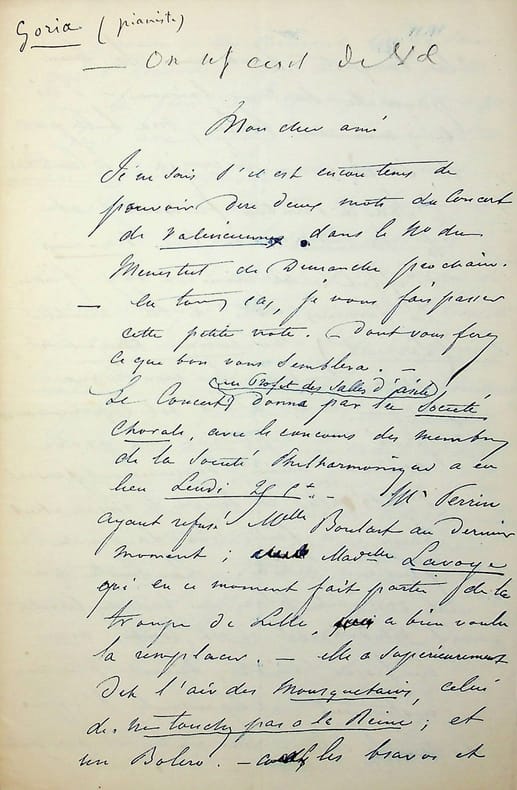 Goria (pianiste)
Mon cher ami
Je ne sais s'il est encore tems de
pouvoir dire deux mots du Concert
de Valenciennes dans le No du
Menestrel de Dimanche prochain.
— en tous cas, je vous fais passer
cette petite note. — Dont vous ferez
ce que bon vous semblera. —
(au Profit des Salles d'asile)
Le Concert donné par la Société
Chorale, avec le concours des membres
de la Société Philharmonique a eu
lieu Lundi 25 — Mr Perrin
ayant refusé Melle Boulart au dernier
moment; Madelle Lavoye
qui en ce moment fait partie de la
troupe de Lille, a bien voulu
la remplacer. — elle a supérieurement
dit l'air des Mousquetaires, celui
de ne touchez pas a la Reine; et
un Boléro. — les bravos et